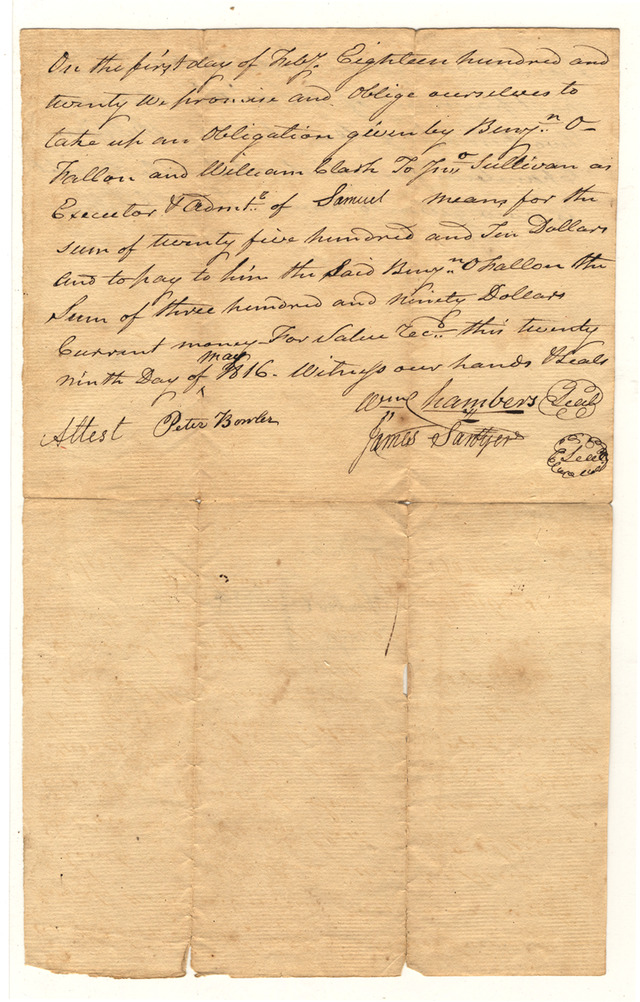 On the first day of Feby. Eighteen hundred and
twenty we promise and oblige ourselves to
take up an obligation given by Benjn. O-
Fallon and William Clark To Jno Sullivan as
Executor & Admte of Samuel means for the
sum of twenty five hundred and Ten Dollars
and to pay to him the Said Benjn. OFallon the
Sum of three hundred and ninety Dollars
Current money For Value Recd. this twenty
ninth Day of May 1816. Witness our hands & Seals
Wm Chambers Seal
Attest Peter Bowler
James Seal